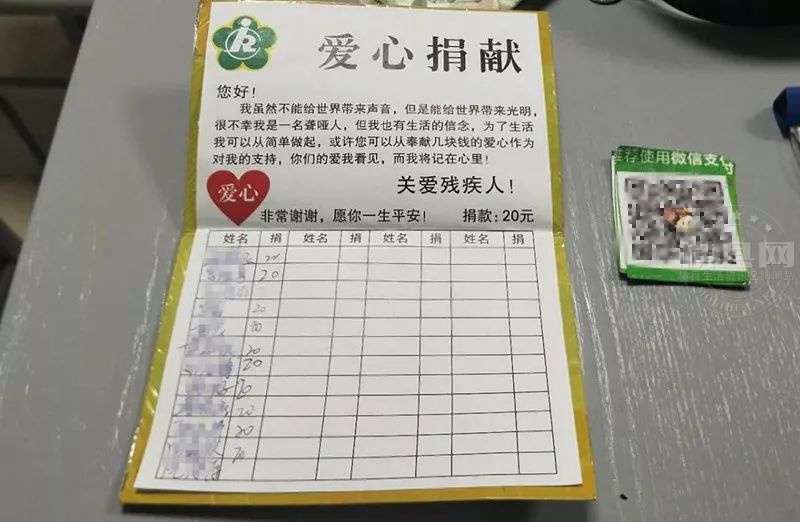 爱心捐献
您好！
我虽然不能给世界带来声音，但是能给世界带来光明，
很不幸我是一名聋哑人，但我也有生活的信念，为了生活
我可以从简单做起，或许您可以从奉献几块钱的爱心作为
对我的支持，你们的爱我看见，而我将记在心里！
爱心
关爱残疾人！
非常谢谢，愿你一生平安！ 捐款：20元
姓名 捐 姓名 捐 姓名 捐 姓名 捐
20
20
20
20
20
20
20
20
推荐使用微信支付